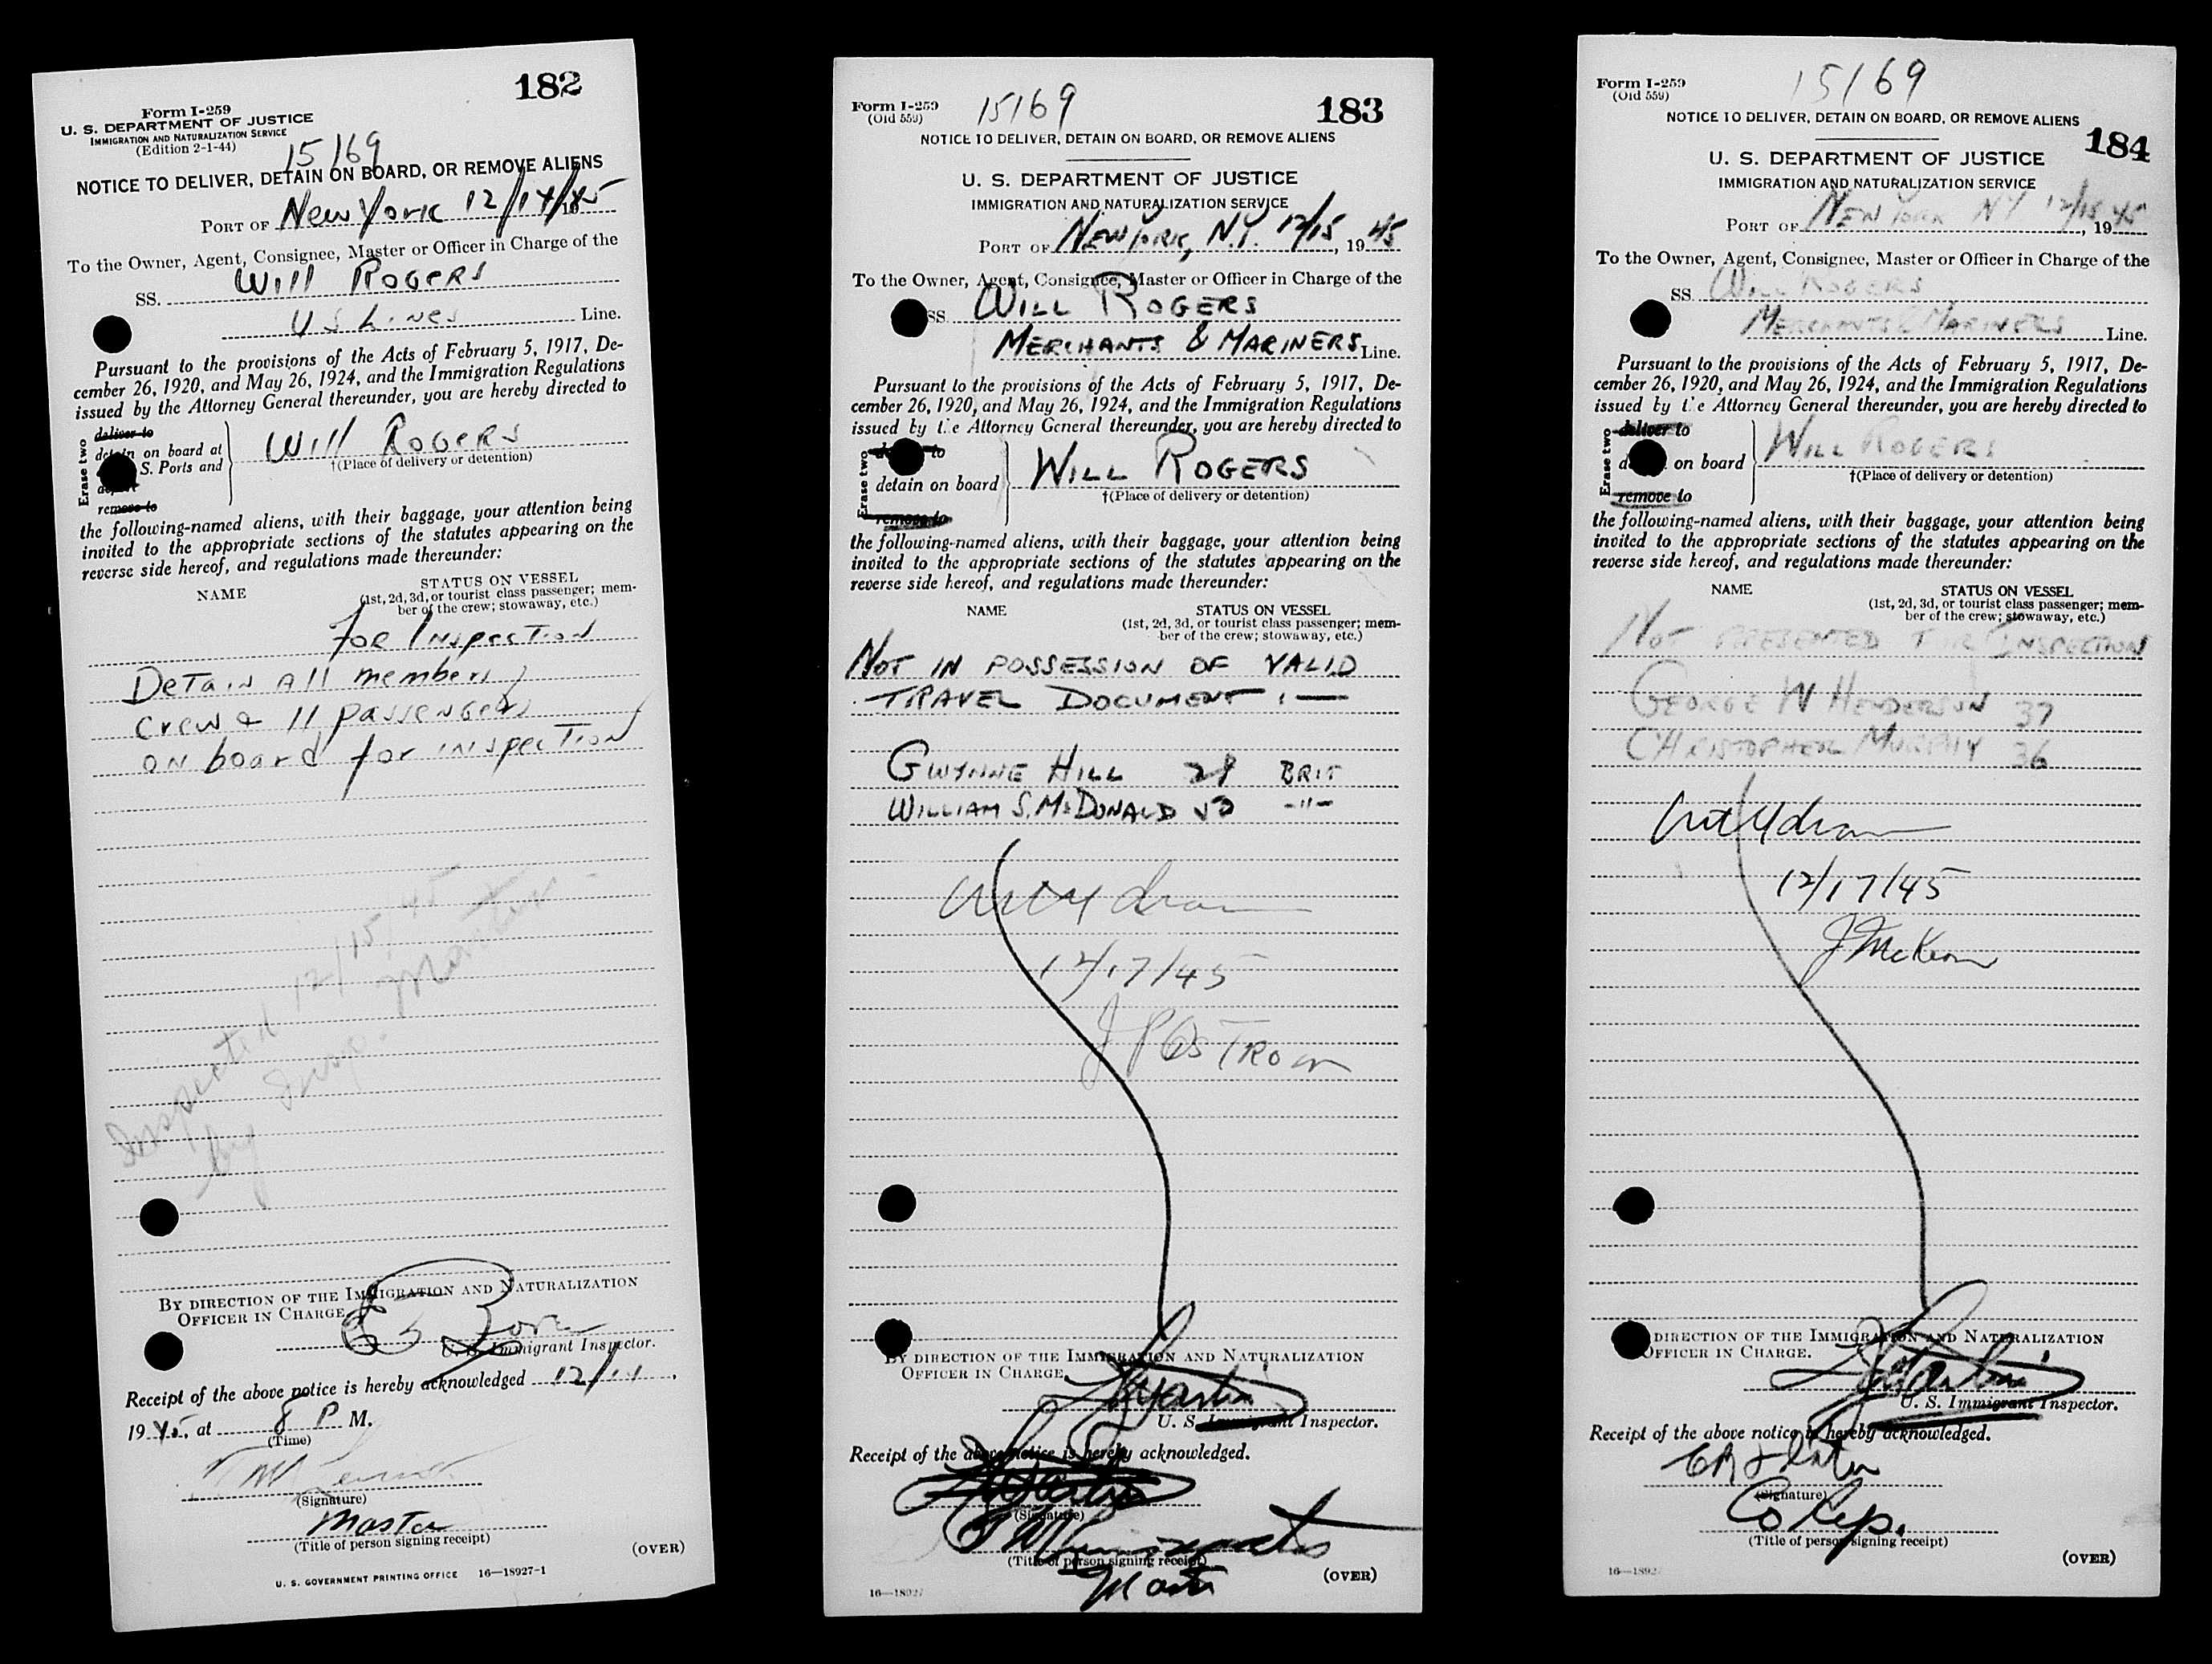 182
Form I-259
U. S. DEPARTMENT OF JUSTICE
IMMIGRATION AND NATURALIZATION SERVICE
(Edition 2-1-44)
15169
NOTICE TO DELIVER, DETAIN ON BOARD, OR REMOVE ALIENS
PORT OF New York 12/14/45
To the Owner, Agent, Consignee, Master or Officer in Charge of the
SS. Will Rogers
US Lines Line.
Pursuant to the provisions of the Acts of February 5, 1917, De-
cember 26, 1920, and May 26, 1924, and the Immigration Regulations
issued by the Attorney General thereunder, you are hereby directed to
Erase two
deliver to
detain on board at
S. Ports and
remove to
Will Rogers
†(Place of delivery or detention)
the following-named aliens, with their baggage, your attention being
invited to the appropriate sections of the statutes appearing on the
reverse side hereof, and regulations made thereunder:
NAME STATUS ON VESSEL
(1st, 2d, 3d, or tourist class passenger; mem-
ber of the crew; stowaway, etc.)
For Inspection
Detain all members
crew & 11 passengers
on board for inspection
Inspected 12/15/45
by Insp. Martin
BY DIRECTION OF THE IMMIGRATION AND NATURALIZATION
OFFICER IN CHARGE.
U. S. Immigrant Inspector.
Receipt of the above notice is hereby acknowledged 12/14,
1945, at 8 P M.
(Time)
(Signature)
Master
(Title of person signing receipt)
(OVER)
U. S. GOVERNMENT PRINTING OFFICE 16—18927-1
Form I-259
(Old 559)
15169
183
NOTICE TO DELIVER, DETAIN ON BOARD, OR REMOVE ALIENS
U. S. DEPARTMENT OF JUSTICE
IMMIGRATION AND NATURALIZATION SERVICE
PORT OF NEW YORK, N.Y. 12/15, 1945
To the Owner, Agent, Consignee, Master or Officer in Charge of the
SS. WILL ROGERS
MERCHANTS & MARINERS Line.
Pursuant to the provisions of the Acts of February 5, 1917, De-
cember 26, 1920, and May 26, 1924, and the Immigration Regulations
issued by the Attorney General thereunder, you are hereby directed to
Erase two
to
detain on board
remove to
WILL ROGERS
†(Place of delivery or detention)
the following-named aliens, with their baggage, your attention being
invited to the appropriate sections of the statutes appearing on the
reverse side hereof, and regulations made thereunder:
NAME STATUS ON VESSEL
(1st, 2d, 3d, or tourist class passenger; mem-
ber of the crew; stowaway, etc.)
NOT IN POSSESSION OF VALID
TRAVEL DOCUMENT :—
GWYNNE HILL 28 BRIT
WILLIAM S. McDONALD 50 -"-
12/17/45
BY DIRECTION OF THE IMMIGRATION AND NATURALIZATION
OFFICER IN CHARGE.
U. S. Immigrant Inspector.
Receipt of the above notice is hereby acknowledged.
(Signature)
(Title of person signing receipt)
Master
(OVER)
16—18927
Form I-259
(Old 559)
15169
NOTICE TO DELIVER, DETAIN ON BOARD, OR REMOVE ALIENS
184
U. S. DEPARTMENT OF JUSTICE
IMMIGRATION AND NATURALIZATION SERVICE
PORT OF NEW YORK NY 12/15, 1945
To the Owner, Agent, Consignee, Master or Officer in Charge of the
SS. WILL ROGERS
MERCHANTS & MARINERS Line.
Pursuant to the provisions of the Acts of February 5, 1917, De-
cember 26, 1920, and May 26, 1924, and the Immigration Regulations
issued by the Attorney General thereunder, you are hereby directed to
Erase two
deliver to
on board
remove to
WILL ROGERS
†(Place of delivery or detention)
the following-named aliens, with their baggage, your attention being
invited to the appropriate sections of the statutes appearing on the
reverse side hereof, and regulations made thereunder:
NAME STATUS ON VESSEL
(1st, 2d, 3d, or tourist class passenger; mem-
ber of the crew; stowaway, etc.)
NOT PRESENTED FOR INSPECTION
GEORGE W HENDERSON 37
CHRISTOPHER MURPHY 36
12/17/45
J McKeon
DIRECTION OF THE IMMIGRATION AND NATURALIZATION
OFFICER IN CHARGE.
U. S. Immigrant Inspector.
Receipt of the above notice is hereby acknowledged.
(Signature)
Co Rep.
(Title of person signing receipt)
(OVER)
16—1892